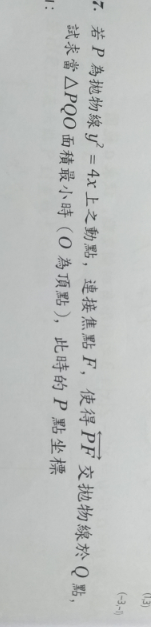 7. 若 P 為拋物線 y² = 4x 上之動點，連接焦點 F，使得 \overleftrightarrow{PF} 交拋物線於 Q 點，
試求當 △PQO 面積最小時（O 為頂點），此時的 P 點坐標
(-3,-1)